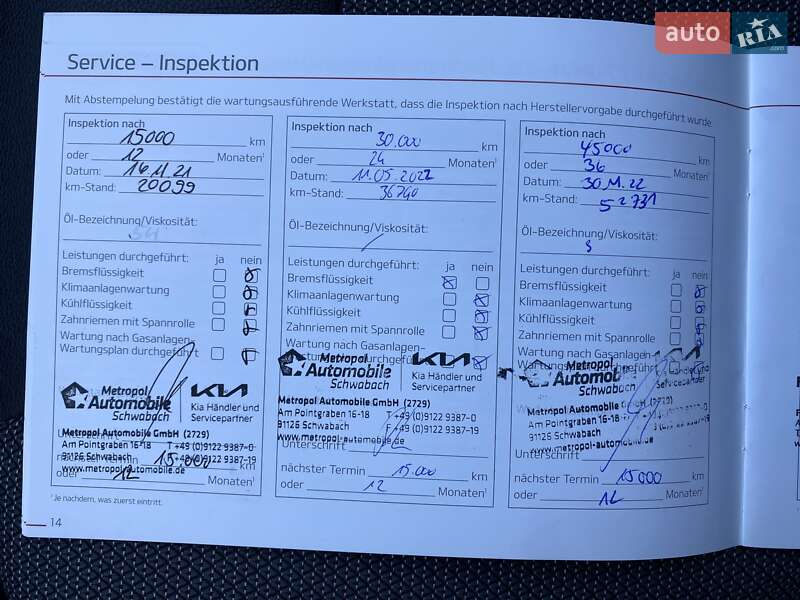 auto RIA.com
Service – Inspektion
Mit Abstempelung bestätigt die wartungsausführende Werkstatt, dass die Inspektion nach Herstellervorgabe durchgeführt wurde.
Inspektion nach
15000 km
oder 12 Monaten¹
Datum: 16.11.21
km-Stand: 20099
Öl-Bezeichnung/Viskosität:
Leistungen durchgeführt: ja nein
Bremsflüssigkeit
Klimaanlagenwartung
Kühlflüssigkeit
Zahnriemen mit Spannrolle
Wartung nach Gasanlagen-
Wartungsplan durchgeführt
Metropol
Automobile
Schwabach
KIA
Kia Händler und
Servicepartner
Metropol Automobile GmbH (2729)
Am Pointgraben 16-18 T +49 (0)9122 9387-0
91126 Schwabach F +49(0)9122 9387-19
www.metropol-automobile.de
nächster Termin 15.000 km
oder 12 Monaten¹
Inspektion nach
30.000 km
oder 24 Monaten¹
Datum: 11.05.2022
km-Stand: 36740
Öl-Bezeichnung/Viskosität:
Leistungen durchgeführt: ja nein
Bremsflüssigkeit
Klimaanlagenwartung
Kühlflüssigkeit
Zahnriemen mit Spannrolle
Wartung nach Gasanlagen-
Metropol
Automobile
Schwabach
KIA
Kia Händler und
Servicepartner
Metropol Automobile GmbH (2729)
Am Pointgraben 16-18 T +49 (0)9122 9387-0
91126 Schwabach F +49 (0)9122 9387-19
www.metropol-automobile.de
Unterschrift
nächster Termin 15.000 km
oder 12 Monaten¹
Inspektion nach
45000 km
oder 36 Monaten¹
Datum: 30.11.22
km-Stand: 52731
Öl-Bezeichnung/Viskosität:
Leistungen durchgeführt: ja nein
Bremsflüssigkeit
Klimaanlagenwartung
Kühlflüssigkeit
Zahnriemen mit Spannrolle
Wartung nach Gasanlagen-
Metropol
Schwabach
Metropol Automobile
Am Pointgraben 16-18
91126 Schwabach
www.metropol-automobile.de
Unterschrift
nächster Termin 15000 km
oder 12 Monaten¹
¹ Je nachdem, was zuerst eintritt.
14